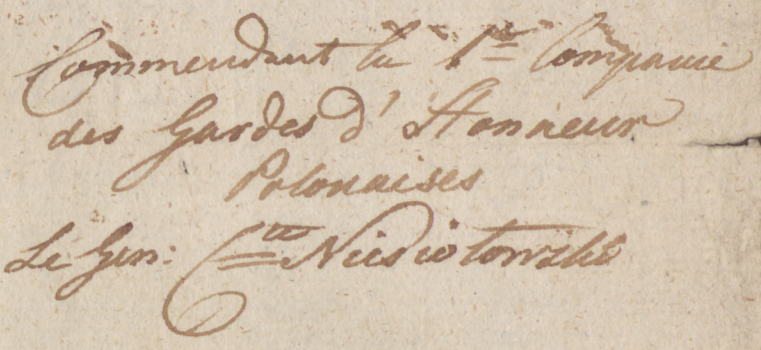 Commendant la 1re Companie
des Gardes d'Honneur
Polonaises
Le Gen: Cte Niesiolowski